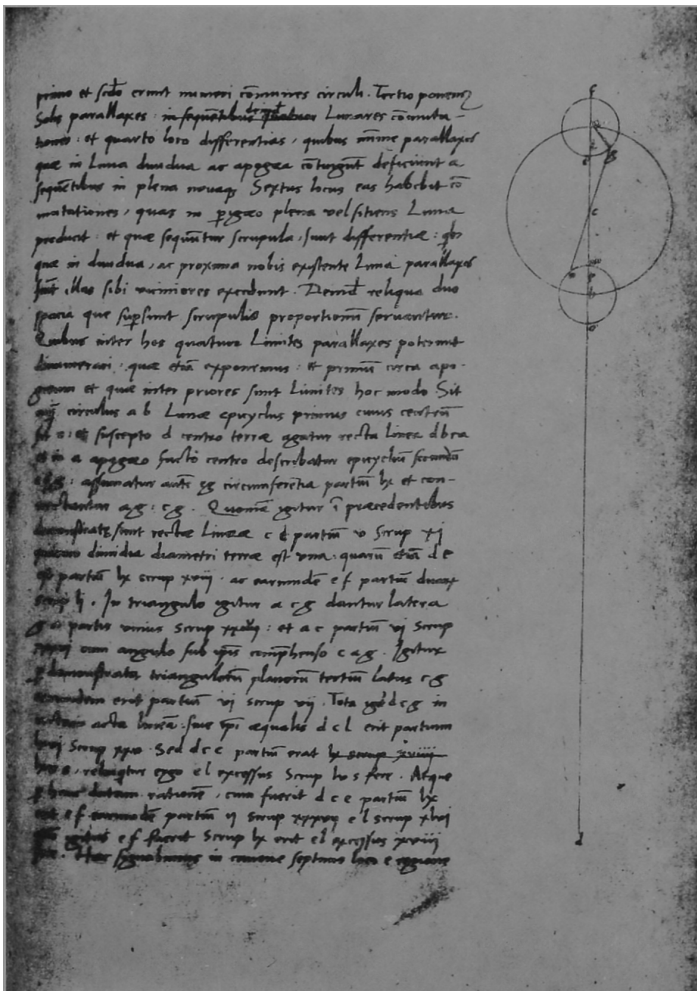 primo et scdo erunt numeri cōmunes circuli. Tertio ponemꝰ
Solis parallaxes: in sequētibus Lunares cōmuta-
tiones: et quarto loco differentias, quibus parallaxes
quae in Luna diuidua ac apogaea cōtingunt deficiunt a
sequētibus in plena novaqꝫ Sextus locus eas habebit cō
mutationes, quas in pigaeo plena vel sitiens Luna
producit: et quae sequūtur scrupula, sunt differentiae:
quae in diuidua, ac proxima nobis existente Luna parallaxes
sunt, illas sibi viciniores excedunt. Deinde reliqua duo
spacia que supsunt scrupulis proportionum servantur.
Quibus inter hos quatuor Limites parallaxes poterunt
dinumerari, quae etiā exponemus: et primum circa apo-
gaeum et quae inter priores sunt Limites hoc modo. Sit
circulus a b Lunae epicyclus primus cuius centrū
sit c: et suscepto d centro terrae agatur recta linea d b c a
et in a apogaeo facto centro describatur epicyclus secundus
e f g: assumatur autē e g circumferentia partium lx et con-
nectantur a g: c g. Quoniā igitur ī praecedentibus
demonstrate sunt rectae lineae c e partium v Scrup xj
quarum dimidia diametri terrae est una: quarū etiā d c
partiū lx scrup xviij. ac earundē e f partiū duarꝫ
scrup lj. In triangulo igitur a c g dantur latera
g a partis unius scrup xxv: et a c partium vj Scrup
xxxvj cum angulo sub ipsis comphenso c a g. Igitur
p demonstrata triangulorū planorū tertium latus c g
earundem erit partium vj scrup vij. Tota igr d c g in
rectam acta lineā sive ipi aequalis d c l erit partium
lxvj Scrup xxv. Sed d c e partiū erat lx scrup xviiij
lxv s, relinqtur ergo e l excessus Scrup lv s fere. Atque
p hanc datam rationē, cum fuerit d c e partium lx
erit e f earundē partium ij scrup xxxvij e l scrup xlvj
igitur e f fuerit Scrup lx erit e l excessus xviij
fere. Hec signabimus in canone septimo loco e regione
f
a
g
e
c
m
b
o
d